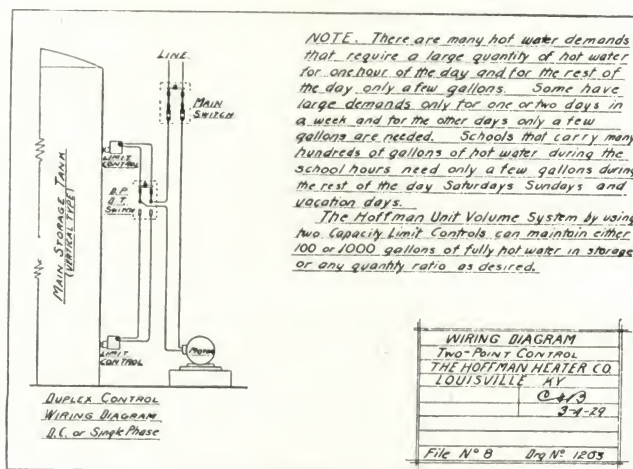 LINE
MAIN
SWITCH
LIMIT
CONTROL
D.P.
D.T.
SWITCH
MAIN STORAGE TANK
(VERTICAL TYPE)
LIMIT
CONTROL
MOTOR
DUPLEX CONTROL
WIRING DIAGRAM
D.C. or Single Phase
NOTE. There are many hot water demands
that require a large quantity of hot water
for one hour of the day and for the rest of
the day only a few gallons. Some have
large demands only for one or two days in
a week and for the other days only a few
gallons are needed. Schools that carry many
hundreds of gallons of hot water during the
school hours need only a few gallons during
the rest of the day Saturdays Sundays and
vacation days.
The Hoffman Unit Volume System by using
two Capacity Limit Controls can maintain either
100 or 1000 gallons of fully hot water in storage
or any quantity ratio as desired.
WIRING DIAGRAM
TWO-POINT CONTROL
THE HOFFMAN HEATER CO.
LOUISVILLE KY
3-4-29
File Nº 8 Drg Nº 1203